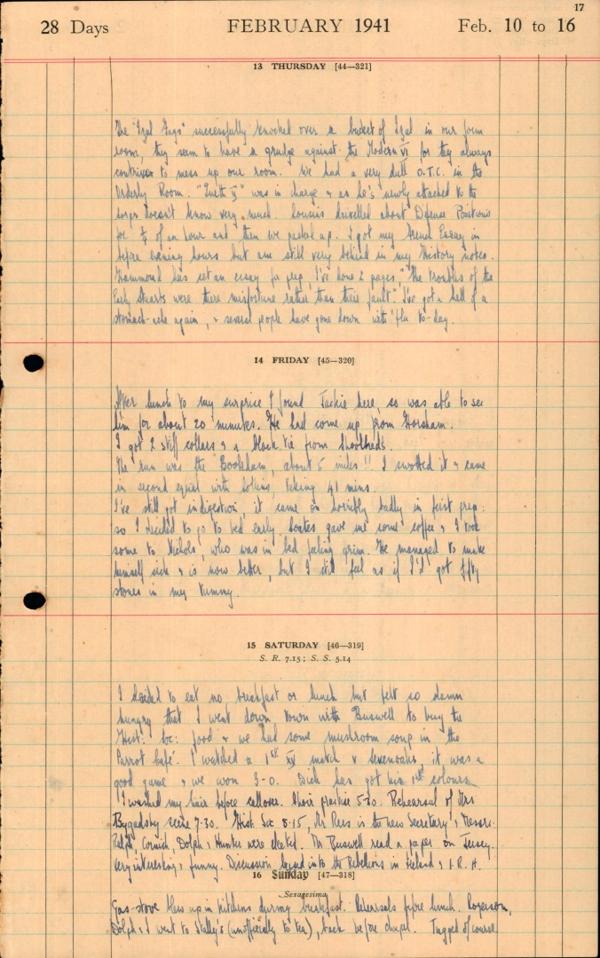 17
28 Days FEBRUARY 1941 Feb. 10 to 16
13 THURSDAY [44—321]
The "Izal Guys" successfully knocked over a bucket of Izal in our form
room, they seem to have a grudge against the Modern VI for they always
contrive to mess up our room. We had a very dull O.T.C. in the
Orderly Room. was in charge & as he's newly attached to the
Corps doesn't know very much. Cousins drivelled about Defence Positions
for of an hour and then we packed up. I got my French Essay in
before evening hours but am still very behind in my History notes.
Hammond has set an essay for prep I've done 2 pages, "The troubles of the
Early Stuarts were there misfortune rather than their fault". I've got a hell of a
stomach-ache again, & several people have gone down with 'flu to-day.
14 FRIDAY [45—320]
After lunch to my surprise I found Jackie here, so was able to see
him for about 20 minutes. He had come up from Horsham.
I got 2 stiff collars & a black tie from Shoolbreds.
The run was the Bookham, about 5 miles!! I swotted it & came
in second equal with taking 41 mins.
I've still got indigestion, it came on horribly badly in first prep:
so I decided to go to bed early. Coates gave me some coffee & I took
some to Nichols, who was in bed feeling grim. He managed to make
himself sick & is now better, but I still feel as if I'd got fifty
stones in my tummy.
15 SATURDAY [46—319]
S. R. 7.15; S. S. 5.14
I decided to eat no breakfast or lunch but felt so damn
hungry that I went down town with Buswell to buy the
Hist: Soc: food & we had some mushroom soup in the
Parrot Café. I watched a 1st XV match v Sevenoaks, it was a
good game & we won 3-0. Dick has got his 1st colours.
I washed my hair before callover. Choir practice 5-30. Rehearsal of Mrs
Bygadsby scene 7-30. Hist Soc 8-15, Mr Rees is the new Secretary & Treasr.
Ralph, Cornick, Dolph & Hunter were elected. Mr Buswell read a paper on Jersey.
very interesting & funny. Discussion into the Rebellions in Ireland & I.R.A.
16 Sunday [47—318]
Sexagesima
Gas-stove blew up in kitchens during breakfast. Rehearsals before lunch. Rogerson,
Dolph & I went to Stally's (unofficially to tea), back before chapel. Tugged of course